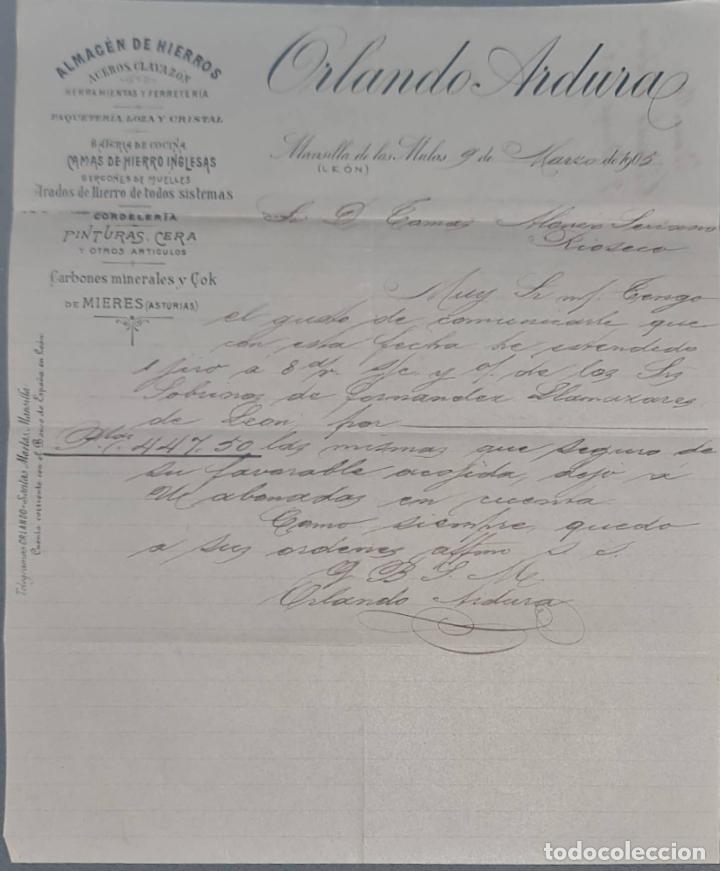 ALMACÉN DE HIERROS
ACEROS, CLAVAZÓN
HERRAMIENTAS Y FERRETERÍA
PAQUETERÍA, LOZA Y CRISTAL
BATERÍA DE COCINA
CAMAS DE HIERRO INGLESAS
GERGONES DE MUELLES
Arados de Hierro de todos sistemas
CORDELERÍA
PINTURAS, CERA
Y OTROS ARTICULOS
Carbones minerales y Cok
DE MIERES (ASTURIAS)
Telegramas ORLANDO=Santas Martas, Mansilla.
Cuenta corriente con el Banco de España en León
Orlando Ardura
Mansilla de las Mulas 9 de Marzo de 1905
(LEÓN)
Sr D Tomas Alonso
Rioseco
Muy Sr m/ Tengo
el gusto de comunicarle que
con esta fecha he estendedo
giro a 8 d/v s/c y o/ de los Srs
Sobrinos de Fernandez Llamazares
de Leon por
Ptas 447.50 las mismas que seguro de
su favorable acojida, dejo á
V abonadas en cuenta
Como siempre, quedo
a sus ordenes affmo s. s.
Q B S M
Orlando Ardura
todocoleccion